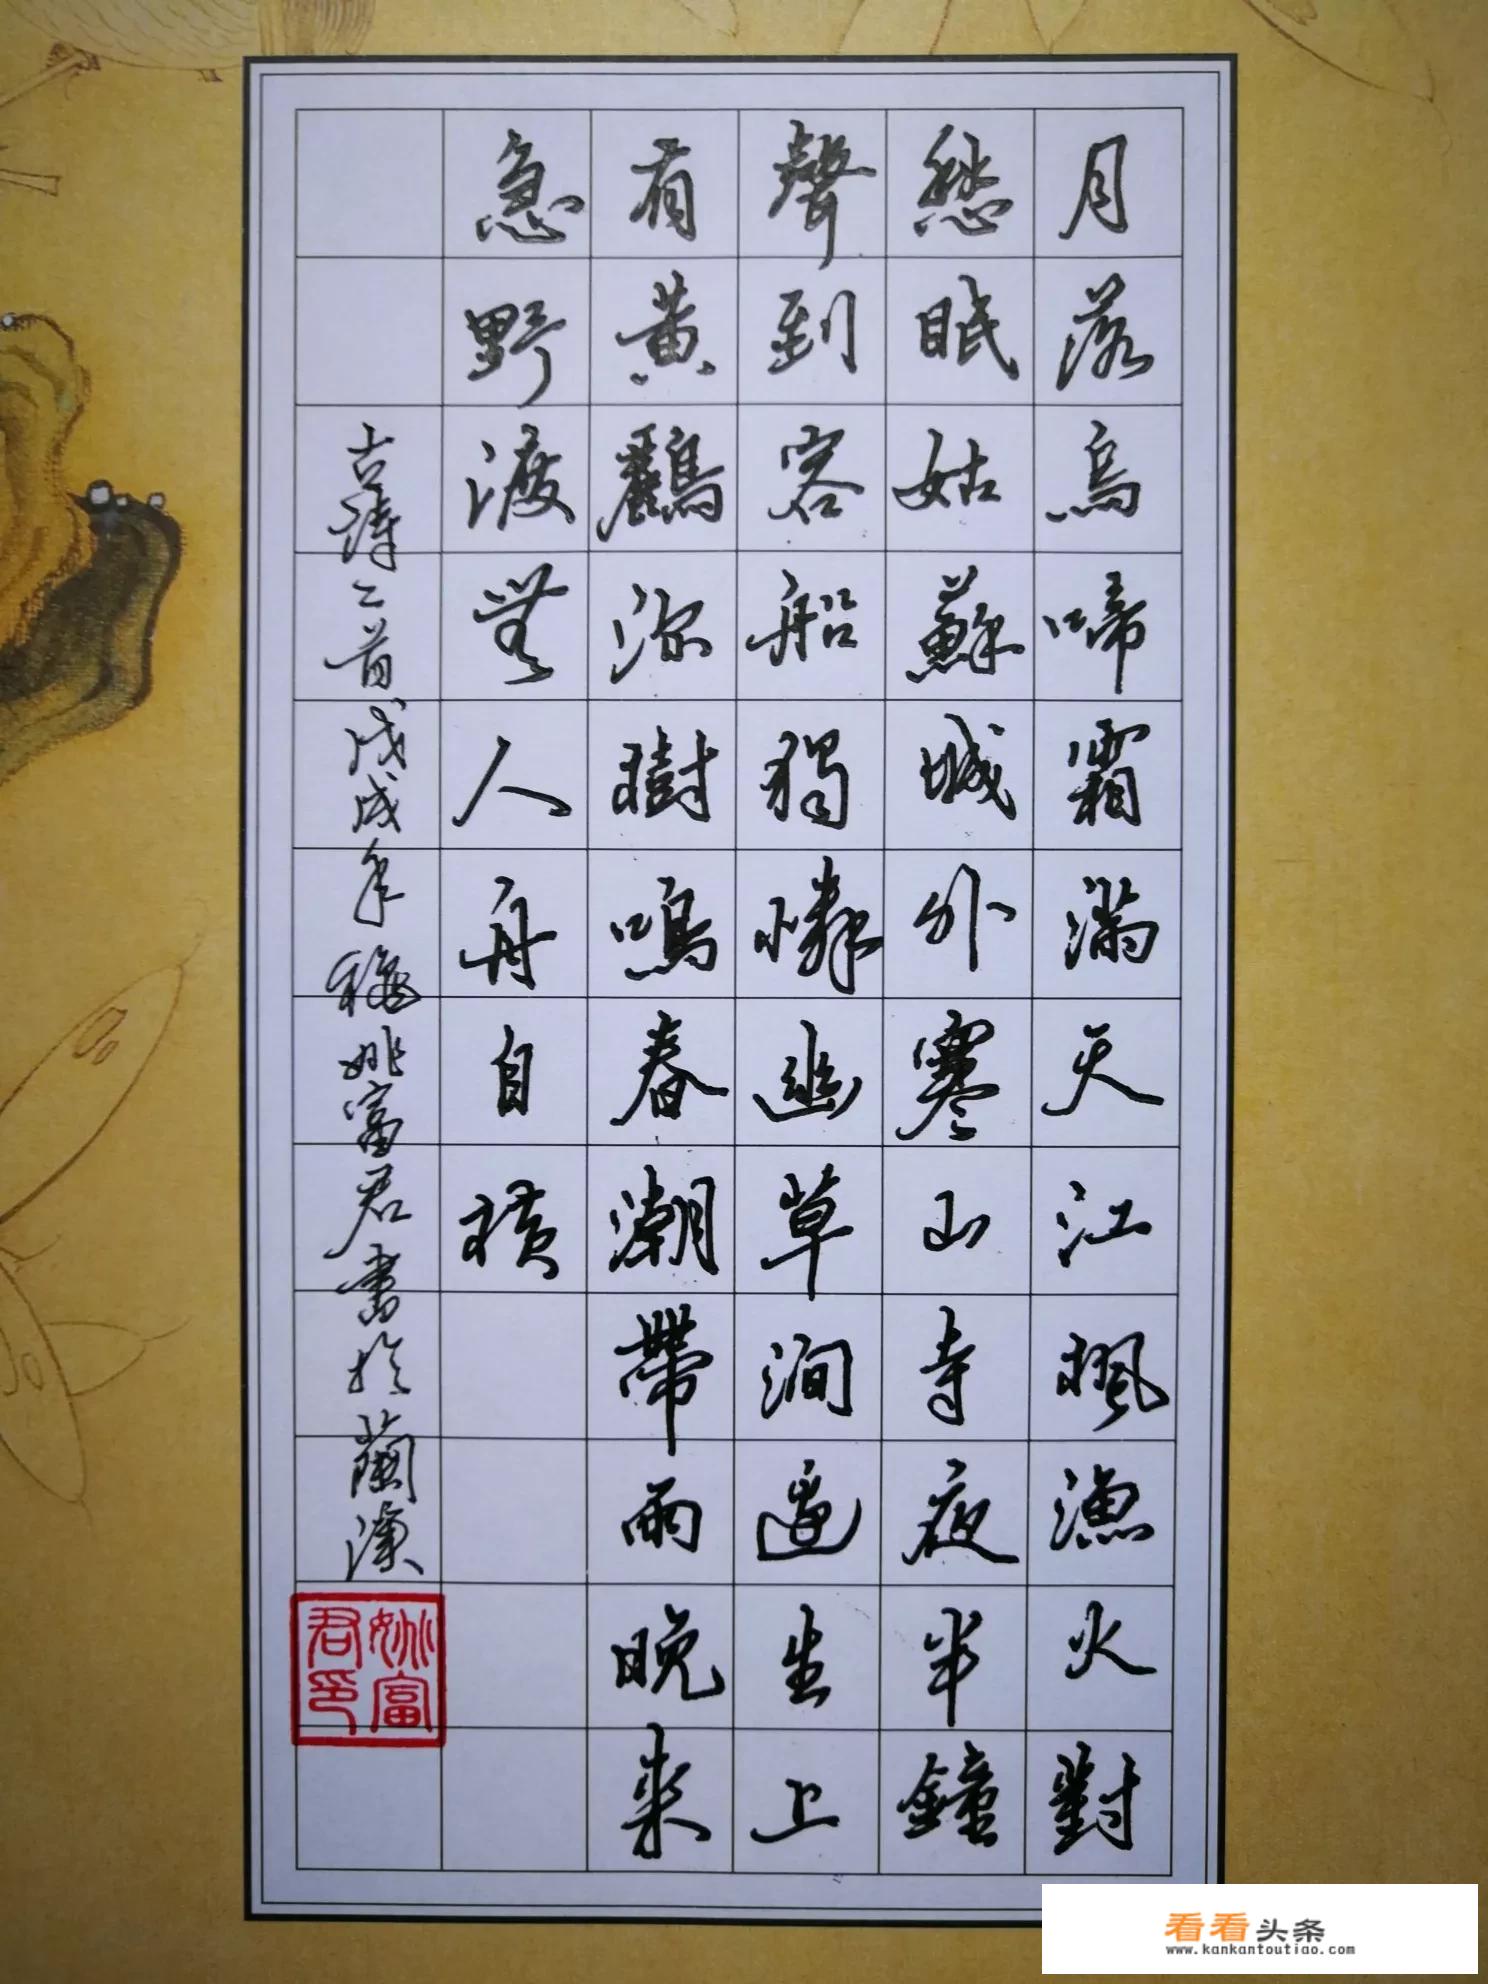 月落烏啼霜滿天江楓漁火對
愁眠姑蘇城外寒山寺夜半鐘
聲到客船獨憐幽草澗邊生上
有黃鸝深樹鳴春潮帶雨晚來
急野渡無人舟自橫
古詩二首戊戌年穐姚富君書於蘭溪
姚富君印
看看头条
www.kankantoutiao.com